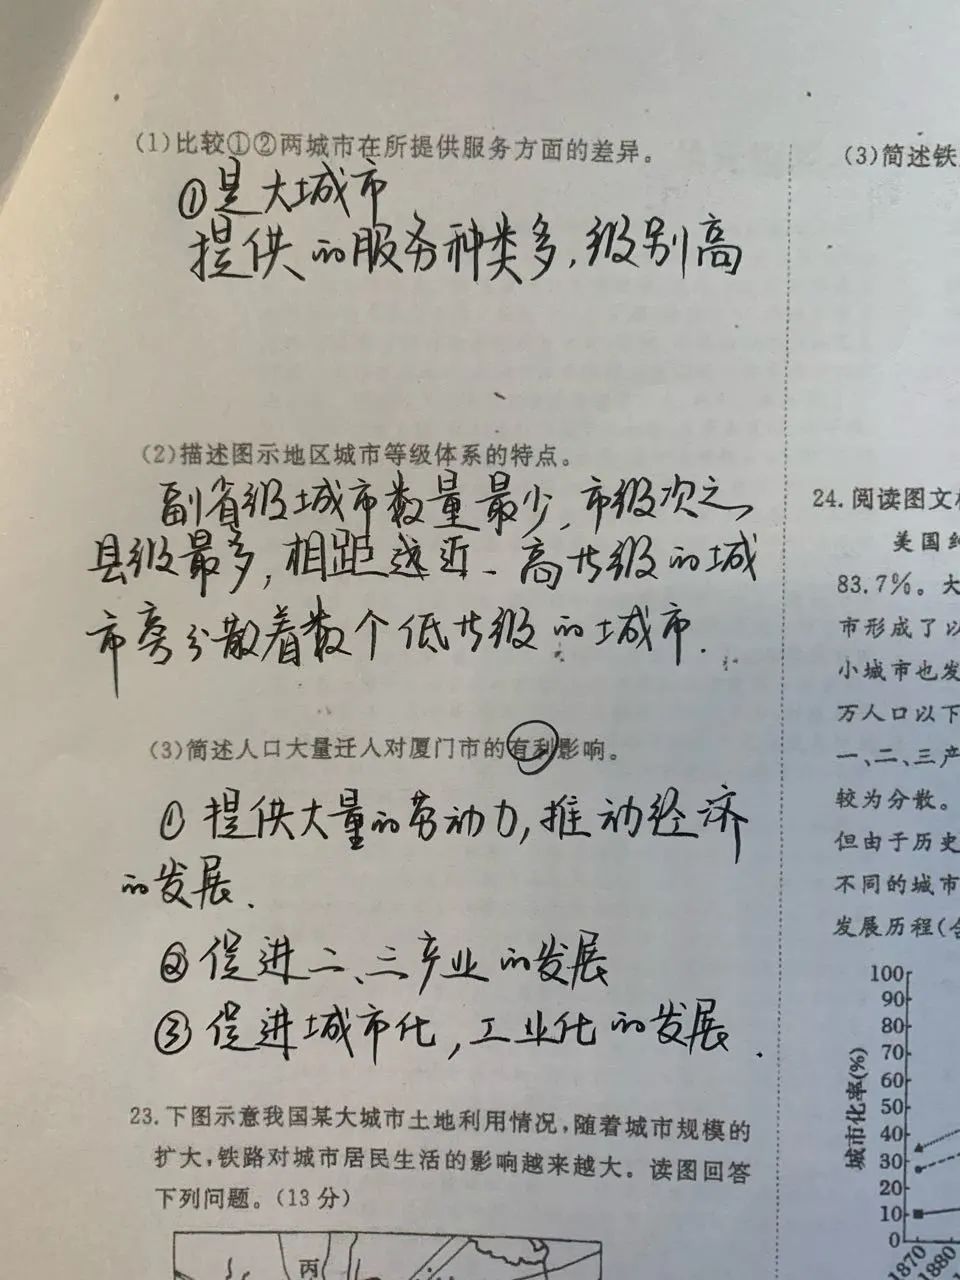 (1)比较①②两城市在所提供服务方面的差异。
①是大城市
提供的服务种类多,级别高
(2)描述图示地区城市等级体系的特点。
副省级城市数量最少,市级次之,
县级最多,相距越近、高等级的城
市旁分散着数个低等级的城市.
(3)简述人口大量迁入对厦门市的有利影响。
①提供大量的劳动力,推动经济
的发展.
②促进二、三产业的发展
③促进城市化,工业化的发展.
23.下图示意我国某大城市土地利用情况,随着城市规模的
扩大,铁路对城市居民生活的影响越来越大。读图回答
下列问题。(13分)
丙
(3)简述铁
24.阅读图文
美国
83.7%。大
市形成了以
小城市也发
万人口以下
一、二、三产
较为分散。
但由于历史
不同的城市
发展历程(
城市化率(%)
100
90
80
70
60
50
40
30
20
10
0
1870
1880